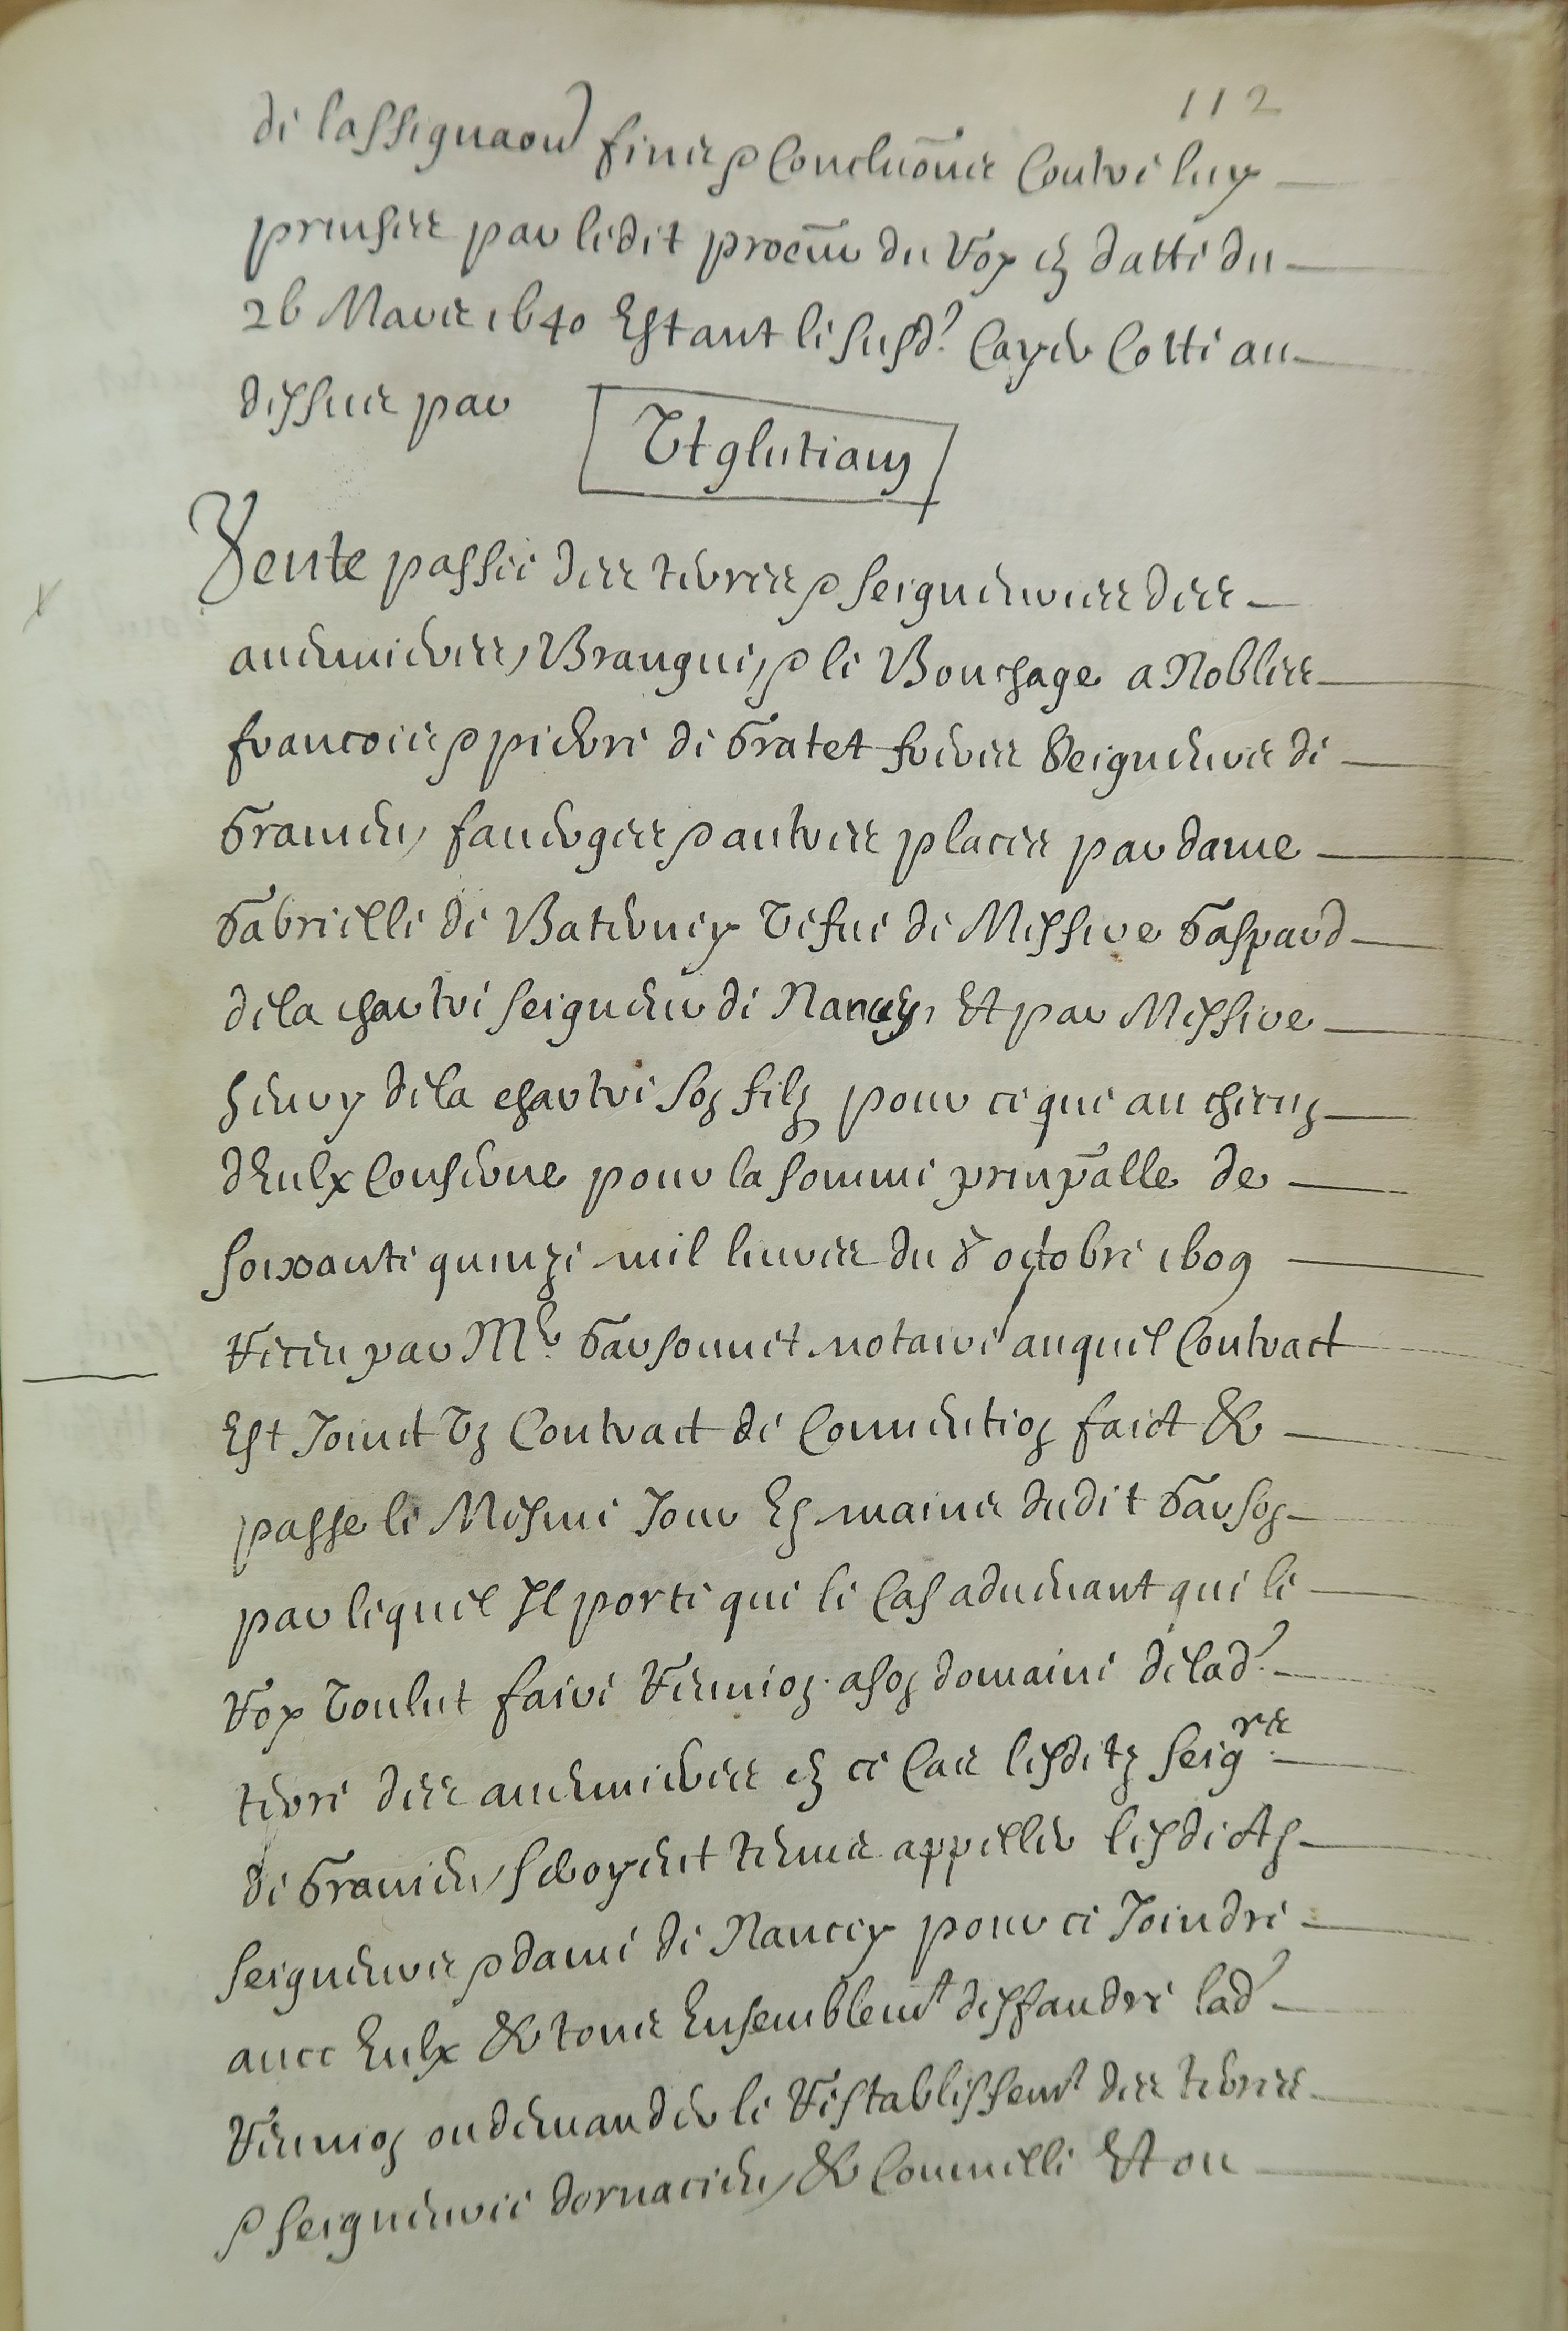 112
de lassignaon fins & Concluons Contre luy
prinses par ledit procur du Roy en datte du
26 Mars 1640 Estant le susd. Cayer Cotté au
dessus par
Vt glutiam
Vente passée des terres & seigneuries des
auenieres, Brangue, & le Bouchage a Nobles
francois & pierre de Gratet freres Seigneurs de
Granieu, fauerges & autres places par dame
Gabrielle de Baterney vefue de Messire Gaspard
de la chartre seigneur de Nancey, Et par Messire
henry de la chartre son filz pour ce que au chien
dEulx Conserne pour la somme prinpalle de
soixante quinze mil liures du 8 octobre 1609
Receu par Me. Garsonnet notaire auquel Contract
Est Joinct Vn Contract de Conuention faict &
passe le Mesme Jour En mains dudit Garson
par lequel Il porte que le Cas aduenant que le
Roy Voulut faire Reunion a son domaine de lad.
terre des auenieres en ce Cas lesditz seigrs.
de Granieu, seroyent tenus appeller lesdicts
seigneurs & dame de Nancey pour ce Joindre
auec Eulx & tous Ensemblemt deffandre lad.
Reunion ou demander le Restablissemt des terres
& seigneurie dornacieu, & Commelle Et ou